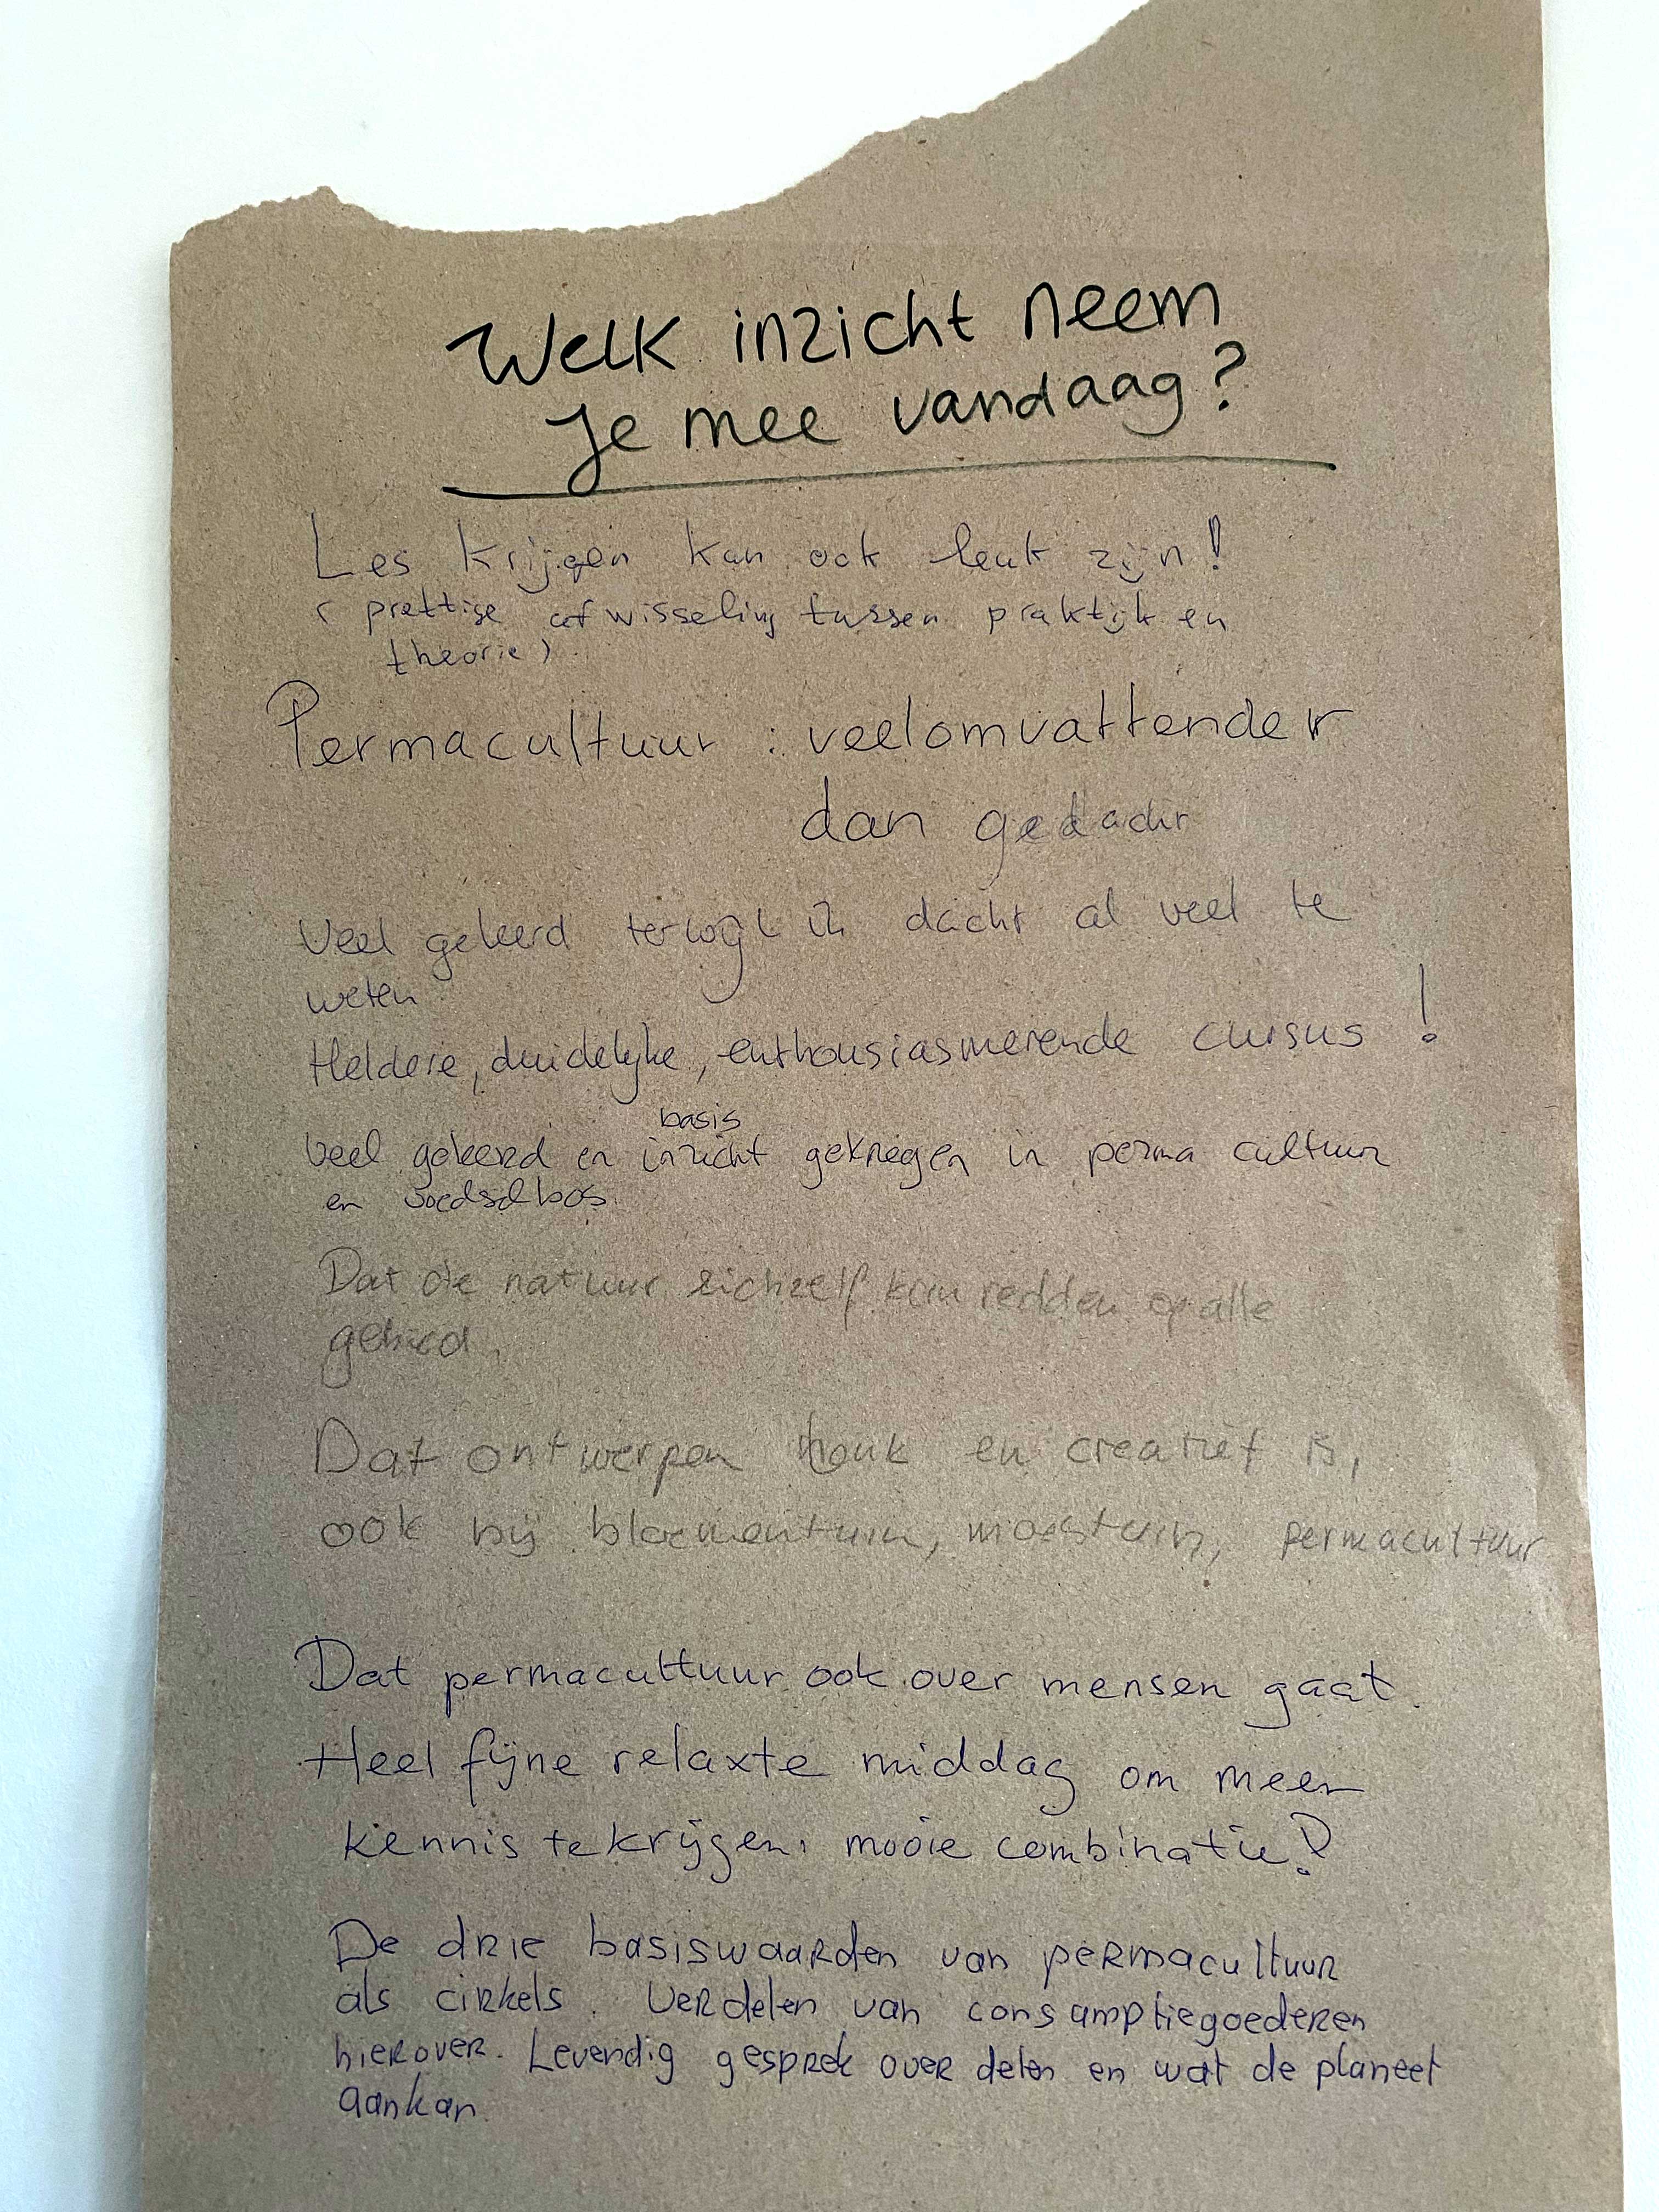 Welk inzicht neem
je mee vandaag?
Les krijgen kan ook leuk zijn!
( prettige afwisseling tussen praktijk en
theorie)
Permacultuur : veelomvattender
dan gedacht
Veel geleerd terwijl ik dacht al veel te
weten
Heldere, duidelijke, enthousiasmerende cursus !
basis
veel geleerd en inzicht gekregen in perma cultuur
en voedselbos.
Dat de natuur zichzelf kan redden op alle
gebied.
Dat ontwerpen leuk en creatief is,
ook bij bloementuin, moestuin, permacultuur
Dat permacultuur ook over mensen gaat.
Heel fijne relaxte middag om meer
kennis te krijgen, mooie combinatie!
De drie basiswaarden van permacultuur
als cirkels. Verdelen van consumptiegoederen
hierover. Levendig gesprek over delen en wat de planeet
aankan.